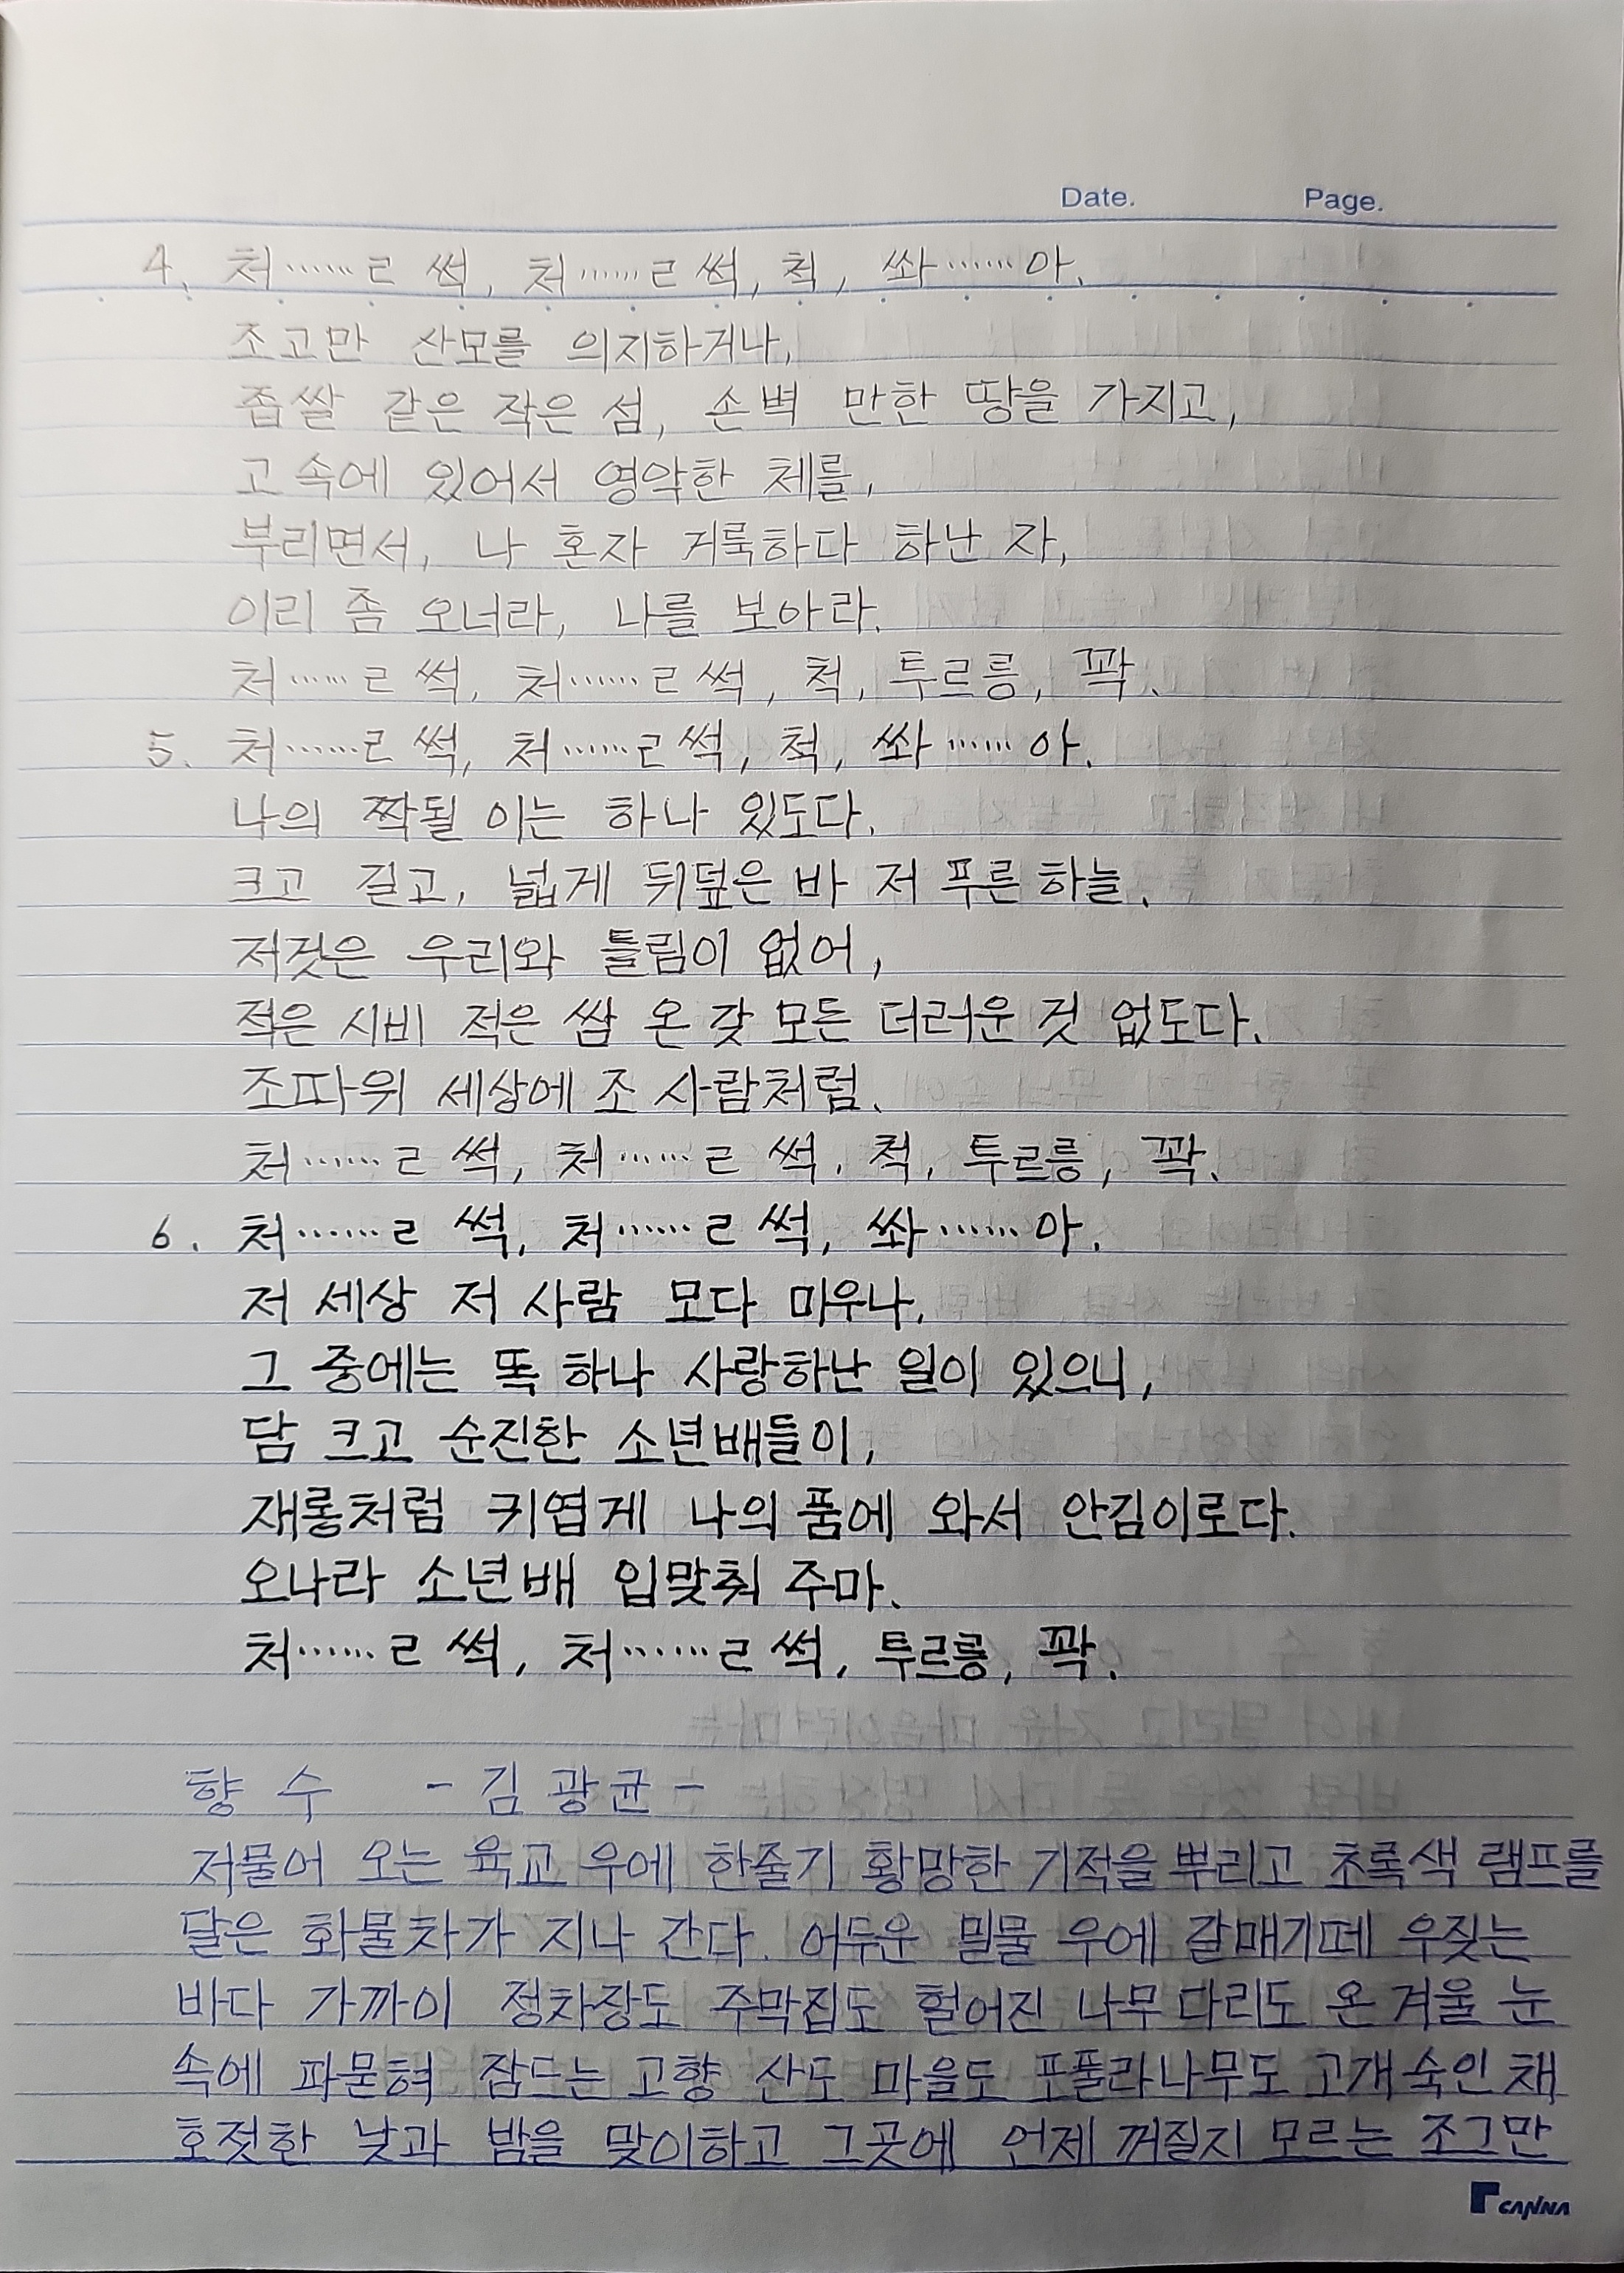 Date. Page.
4. 처……ㄹ 썩, 처……ㄹ 썩, 척, 쏴……아.
조고만 산모를 의지하거나,
좁쌀 같은 작은 섬, 손벽 만한 땅을 가지고,
고 속에 있어서 영악한 체를,
부리면서, 나 혼자 거룩하다 하난 자,
이리 좀 오너라, 나를 보아라.
처……ㄹ 썩, 처……ㄹ 썩, 척, 투르릉, 꽉.
5. 처……ㄹ 썩, 처……ㄹ 썩, 척, 쏴……아.
나의 짝될 이는 하나 있도다.
크고 길고, 넓게 뒤덮은 바 저 푸른 하늘.
저것은 우리와 틀림이 없어,
적은 시비 적은 쌈 온갖 모든 더러운 것 없도다.
조따위 세상에 조 사람처럼.
처……ㄹ 썩, 처……ㄹ 썩, 척, 투르릉, 꽉.
6. 처……ㄹ 썩, 처……ㄹ 썩, 쏴……아.
저 세상 저 사람 모다 미우나,
그 중에는 똑 하나 사랑하난 일이 있으니,
담 크고 순진한 소년배들이,
재롱처럼 키엽게 나의 품에 와서 안김이로다.
오나라 소년배 입맞춰 주마.
처……ㄹ 썩, 처……ㄹ 썩, 투르릉, 꽉.
향수 - 김광균 -
저물어 오는 육교 우에 한줄기 황망한 기적을 뿌리고 초록색 램프를
달은 화물차가 지나 간다. 어두운 밀물 우에 갈매기떼 우짖는
바다 가까이 정차장도 주막집도 헐어진 나무 다리도 온 겨울 눈
속에 파묻혀 잠드는 고향 산도 마을도 포플라나무도 고개 숙인 채
호젓한 낮과 밤을 맞이하고 그곳에 언제 꺼질지 모르는 조그만
CANNA